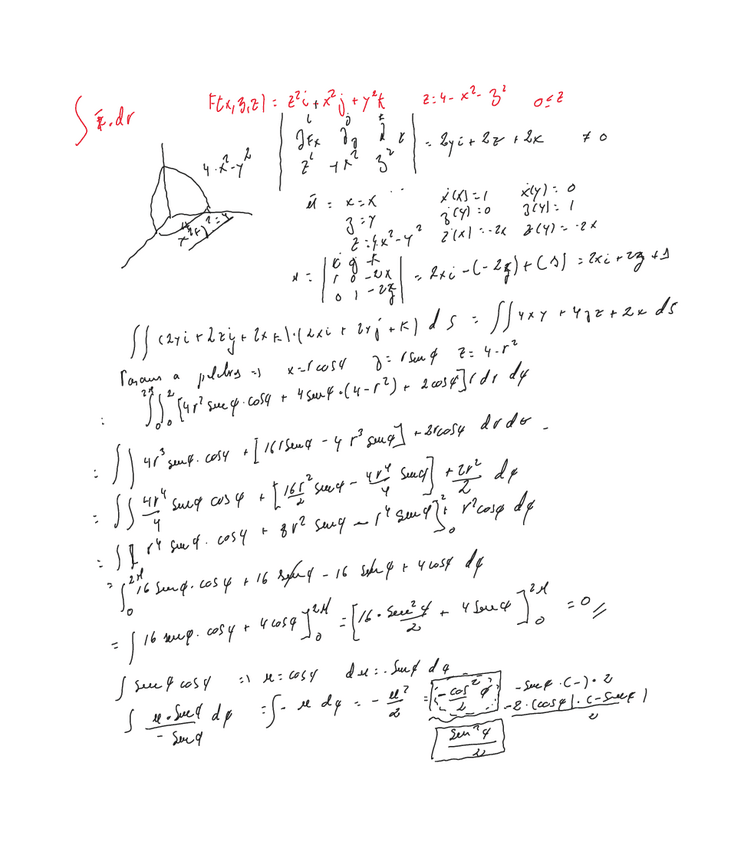 ∫ F.dr
F(x,y,z) = z²i + x²j + y²k   z = 4 - x² - y²   0 ≤ z
| i j k
∂Fx ∂y ∂z
z² + x² y² | = 2yi + 2z + 2x ≠ 0
4-x²-y²
x²+y²=4
x = x   x'(x) = 1   x(y) = 0
y = y   y'(y) = 0   y(y) = 1
z = 4x²-y²   z'(x) = -2x   z(y) = -2x
n = | i j k
1 0 -2x
0 1 -2y | = 2xi - (-2y) + (1) = 2xi + 2y + 1
∫∫ (2yi + 2zj + 2xk)·(2xi + 2yj + k) dS = ∫∫ 4xy + 4yz + 2x dS
a polares => x = r cosφ   y = r senφ   z = 4-r²
: ∫₀^2π ∫₀² [4r² senφ·cosφ + 4 senφ·(4-r²) + 2cosφ] r dr dφ
= ∫∫ 4r³ senφ·cosφ + [16r senφ - 4r³ senφ] + 2r cosφ dr dσ -
= ∫∫ 4r⁴/4 senφ cosφ + [16r²/2 senφ - 4r⁴/4 senφ] + 2r²/2 dφ
= ∫[ r⁴ senφ·cosφ + 8r² senφ - r⁴ senφ]₀² + r² cosφ dφ
= ∫₀^2π 16 senφ·cosφ + 16 senφ - 16 senφ + 4cosφ dφ
= ∫ 16 senφ·cosφ + 4cosφ]₀^2π = [16·sen²φ/2 + 4 senφ]₀^2π = 0 //
∫ senφ cosφ => u = cosφ   du = -senφ dφ
∫ u·senφ/-senφ dφ = ∫ -u dφ = -u²/2 = [-cos²φ/2]   -senφ·(-)·2
-2·(cosφ)·(-senφ)/2
sen²φ/2